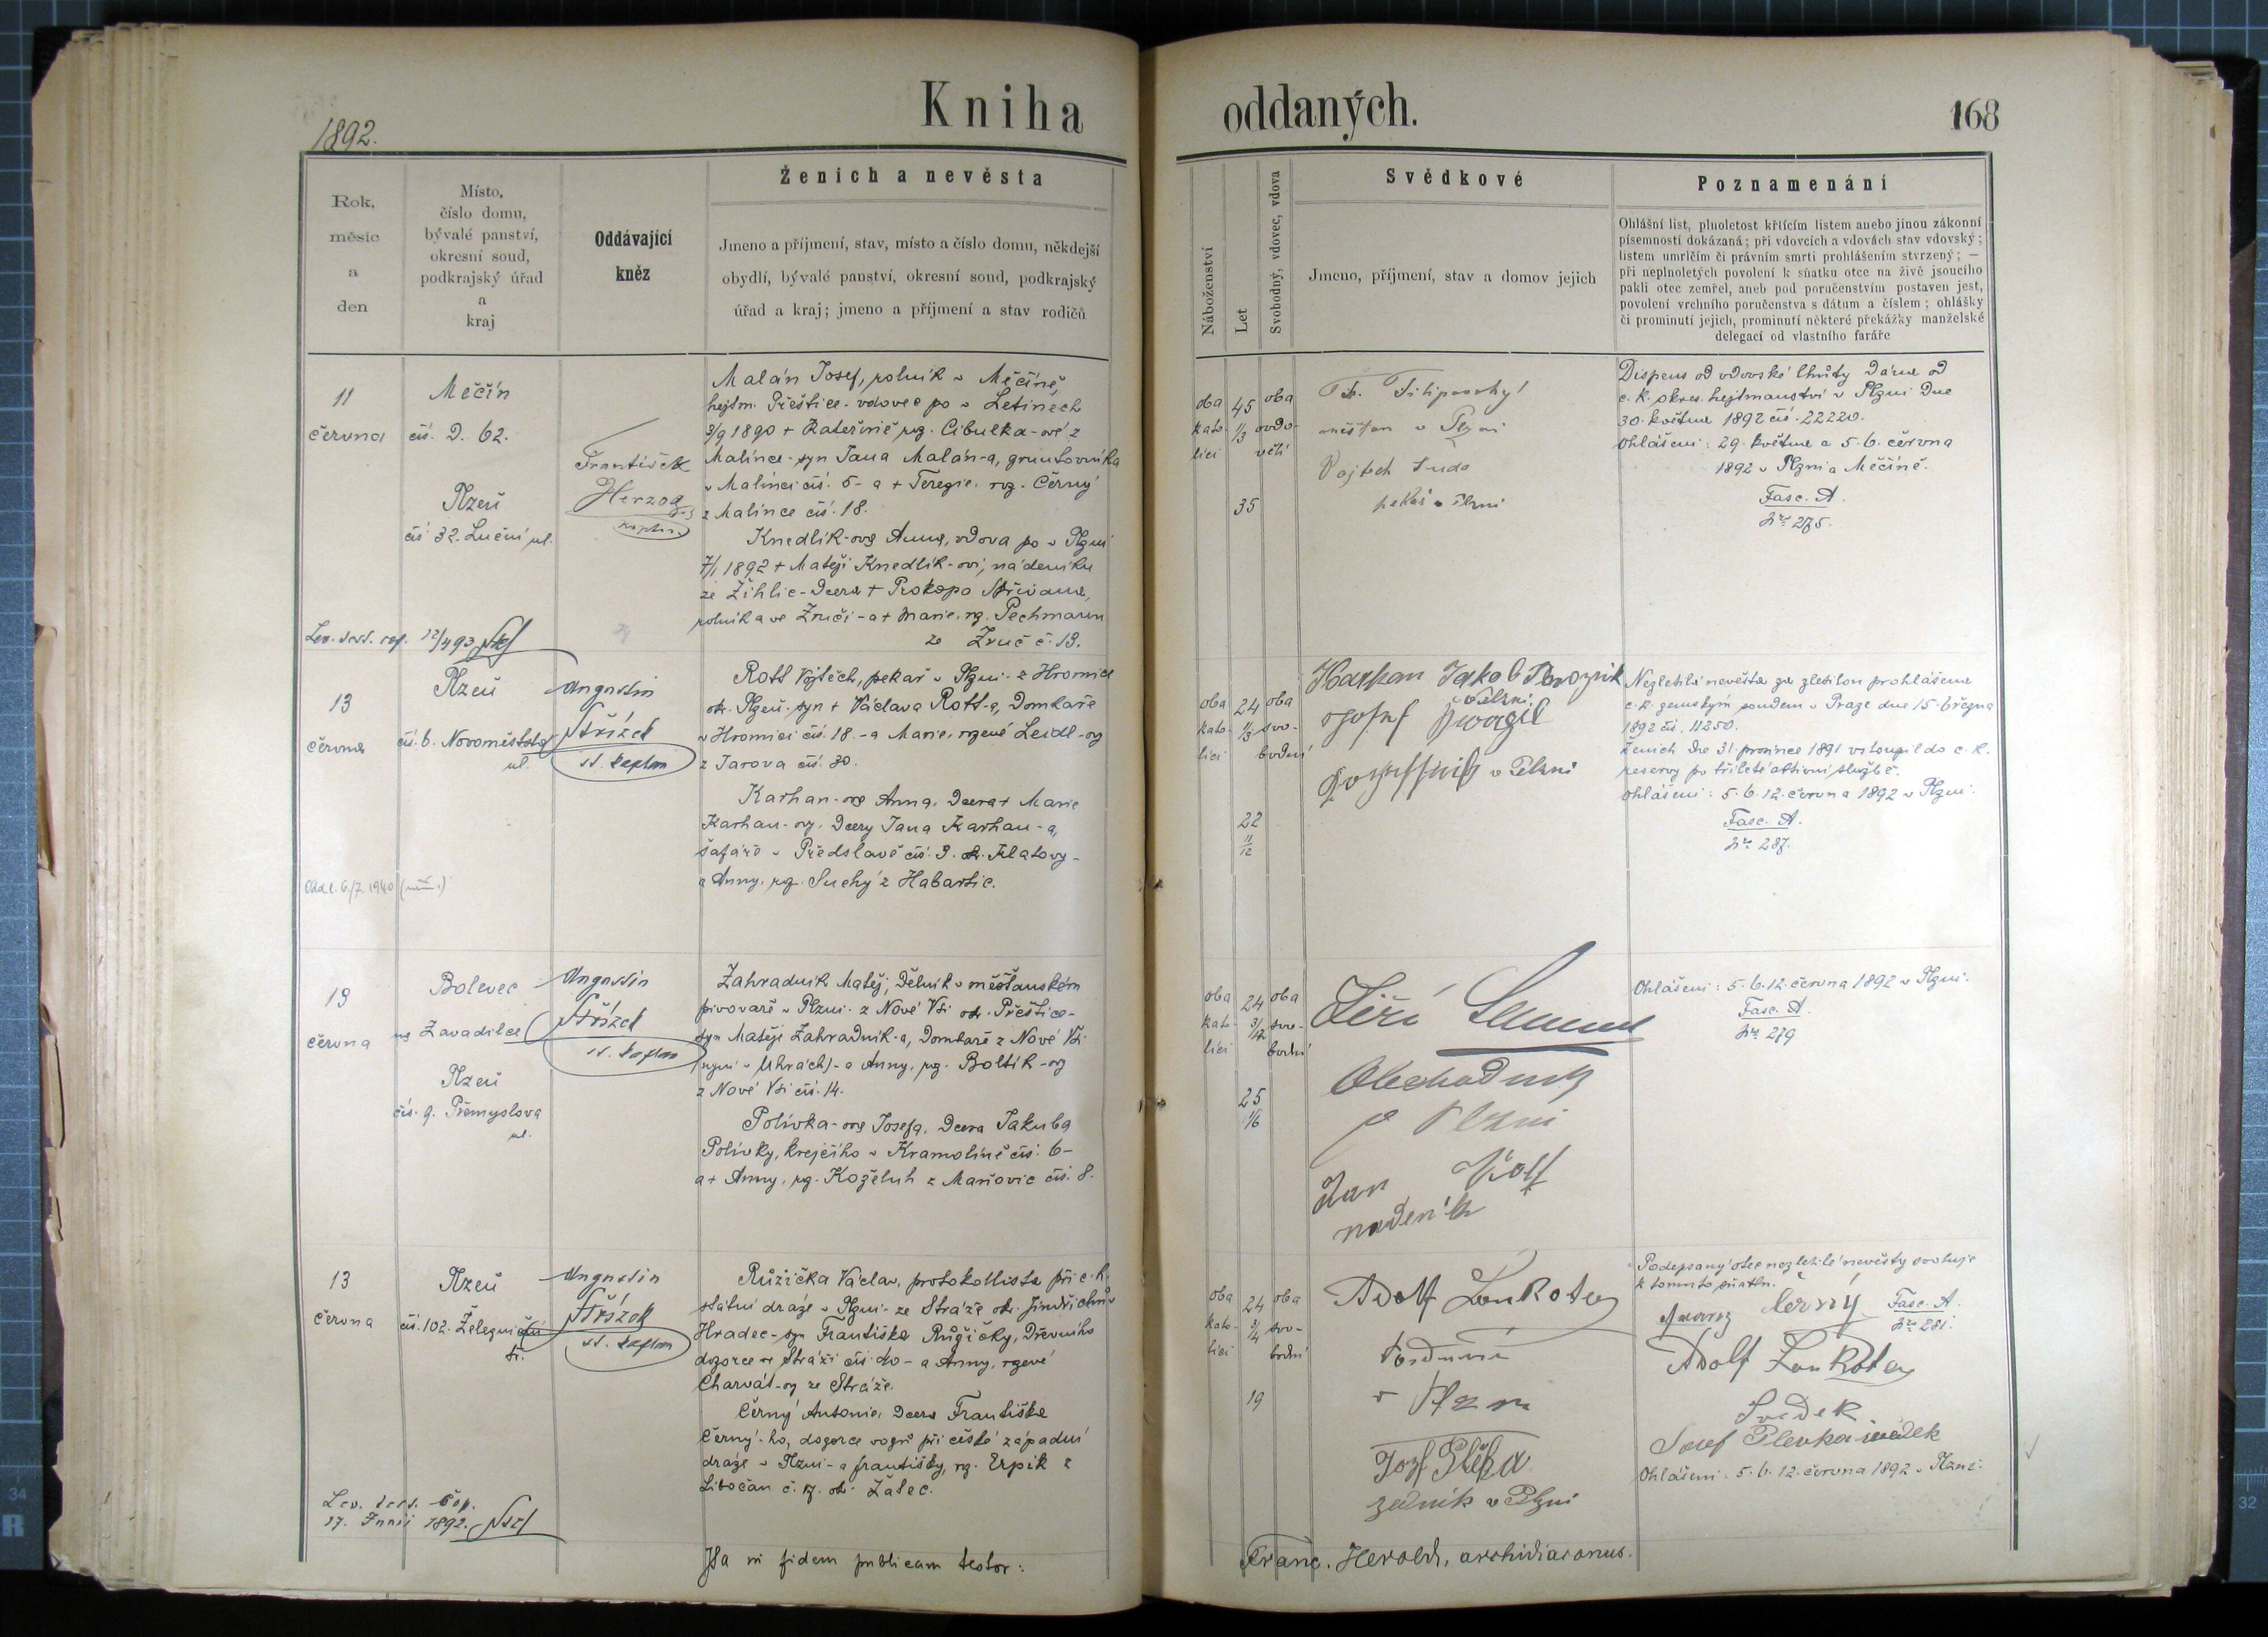 1892.
Kniha oddaných.
168
Rok,
měsíc
a
den
Místo,
číslo domu,
bývalé panství,
okresní soud,
podkrajský úřad
a
kraj
Oddávající
kněz
Ženich a nevěsta
Jmeno a příjmení, stav, místo a číslo domu, někdejší
obydlí, bývalé panství, okresní soud, podkrajský
úřad a kraj; jmeno a příjmení a stav rodičů
Náboženství
Let
Svobodný, vdovec, vdova
Svědkové
Jmeno, příjmení, stav a domov jejich
Poznamenání
Ohlášní list, plnoletost křticím listem anebo jinou zákonní
písemností dokázaná; při vdovcích a vdovách stav vdovský;
listem umrlčím či právním smrti prohlášením stvrzený; —
při neplnoletých povolení k sňatku otce na živě jsoucího
pakli otec zemřel, aneb pod poručenstvím postaven jest,
povolení vrchního poručenstva s dátum a číslem; ohlášky
či prominutí jejich, prominutí některé překážky manželské
delegací od vlastního faráře
11
června
Měčín
čís. D. 62.
Plzeň
čís 32. Luční ul.
František
Herzog
kaplan
Malán Josef, rolník v Měčíně,
hejtm. Přeštice - vdovec po v Letinech
3/9 1890 + Kateřině roz. Cibulka-ové z
Malince - syn Jana Malán-a, gruntovníka
v Malinci čís. 5 - a + Terezie, roz. Černý
z Malince čís. 18.
Knedlík-ova Anna, vdova po v Plzni
7/1 1892 + Matěji Knedlík-ovi, nádeníku
ze Žihlic - dcera + Prokopa
rolníka ve Zruči - a + Marie, rz. Pechmann
ze Zruč č. 19.
12/4 93
oba
kato-
líci
45
1/3
35
oba
ovdo-
věli
Filipovský
měšťan v Plzni
Vojtěch Suda
pekař v Plzni
Dispens od vdovské lhůty dána od
c. k. okres. hejtmanství v Plzni dne
30. května 1892 čís. 22220.
Ohlášeni: 29. května a 5. 6. června
1892 v Plzni a Měčíně.
Fasc. A.
Nro 275.
13
června
Plzeň
čís. 6. Novoměstská
ul.
Augustin
Střízek
st. kaplan
Rott Vojtěch, pekař v Plzni - z Hromice
okr. Plzeň - syn + Václava Rott-a, domkáře
v Hromici čís. 18. - a Marie, rozené Leidl-ov
z Jarova čís. 30.
Karhan-ova Anna, dcera + Marie
Karhan-ov, dcery Jana Karhan-a,
šafáře v Předslavě čís. 3. okr. Klatovy -
a Anny, roz. Suchý z Habartic.
6./7. 1940
oba
kato-
líci
24
1/3
22
11/12
oba
svo-
bodní
Karhan Jakob
v Plzni
v Plzni
Nezletilá nevěsta za zletilou prohlášena
c. k. zemským soudem v Praze dne 15. března
1892 čís. 11250.
Ženich dne 31. prosince 1891 vstoupil do c. k.
reservy po tříleté aktivní službě.
Ohlášeni: 5. 6. 12. června 1892 v Plzni.
Fasc. A.
Nro 287.
13
června
Bolevec
na Zavadilce
Plzeň
čís. 9. Přemyslova
ul.
Augustin
Střízek
st. kaplan
Zahradník Matěj, dělník v měšťanském
pivovaře v Plzni - z Nové Vsi okr. Přeštice -
syn Matěje Zahradník-a, domkáře z Nové Vsi
(nyní v Uhrách) - a Anny, roz. Boltík-ov
z Nové Vsi čís. 14.
Polívka-ova Josefa, dcera Jakuba
Polívky, krejčího v Kramolíně čís. 6 -
a + Anny, roz. Koželuh z Maňovic čís. 8.
oba
kato-
líci
24
3/12
25
1/6
oba
svo-
bodní
Jiří
Obchodník
v Plzni
Jan Wolf
nádeník
Ohlášeni: 5. 6. 12. června 1892 v Plzni.
Fasc. A.
Nro 279
13
června
Plzeň
čís. 102. Železniční
tř.
Augustin
Střízek
st. kaplan
Růžička Václav, protokollista při c. k.
státní dráze v Plzni - ze Stráže okr. Jindřichův
Hradec - syn Františka Růžičky, dřevního
dozorce ve Stráži čís. 40 - a Anny, rozené
Charvát-ov ze Stráže.
Černý Antonie, dcera Františka
Černý-ho, dozorce vozů při české západní
dráze v Plzni - a Františky, roz. Erpik z
Libočan č. 17. okr. Žatec.
17. Junii 1892.
oba
kato-
líci
24
3/4
19
oba
svo-
bodní
Adolf Loukota
v Plzni
zedník v Plzni
Podepsaný otec nezletilé nevěsty svoluje
k tomuto sňatku.
Černý
Fasc. A.
Nro 281.
Adolf Loukota
Svědek
Josef Plevka svědek
Ohlášeni: 5. 6. 12. června 1892 v Plzni.
Ita in fidem publicam testor:
Franc. Herold, archidiaconus.